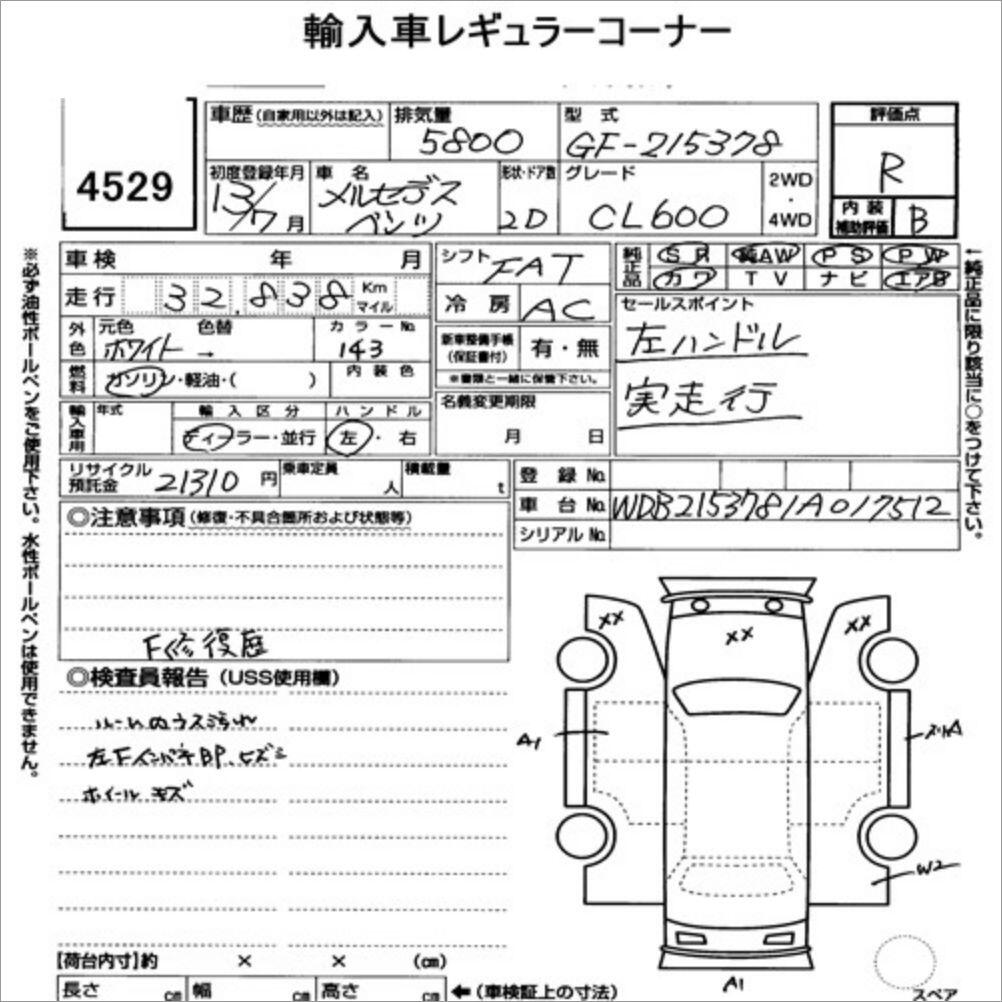 輸入車レギュラーコーナー
4529
車歴(自家用以外は記入)
排気量
5800
型 式
GF-215378
評価点
R
初度登録年月
13/7月
車 名
メルセデス
ベンツ
形状・ドア数
2D
グレード
CL600
2WD
・
4WD
内 装
補助評価
B
車検 年 月
シフト
FAT
純正品
SR 純AW PS PW
カワ TV ナビ エアB
走行 32,838 Km
マイル
冷 房 AC
セールスポイント
左ハンドル
実走行
外色
元色 色替 カラーNo.
ホワイト → 143
新車整備手帳
(保証書付)
有・無
※書類と一緒に保管下さい。
燃料
ガソリン・軽油・( )
内 装 色
名義変更期限
月 日
輸入車用
年式
輸 入 区 分 ハ ン ド ル
ディーラー・並行 左・右
リサイクル
預託金
21310 円
乗車定員
人
積載量
t
登 録 No.
車 台 No. WDB2153781A017512
シリアル No.
◎注意事項(修復・不具合箇所および状態等)
F修復歴
◎検査員報告(USS使用欄)
ルーム内ウス汚れ
左FインパネBP、ヒズミ
ホイール キズ
XX
XX
XX
A1
スリA
W2
A1
スペア
【荷台内寸】約 × × (cm)
長さ cm 幅 cm 高さ cm ←(車検証上の寸法)
※必ず油性ボールペンをご使用下さい。水性ボールペンは使用できません。
←純正品に限り該当に○をつけて下さい。